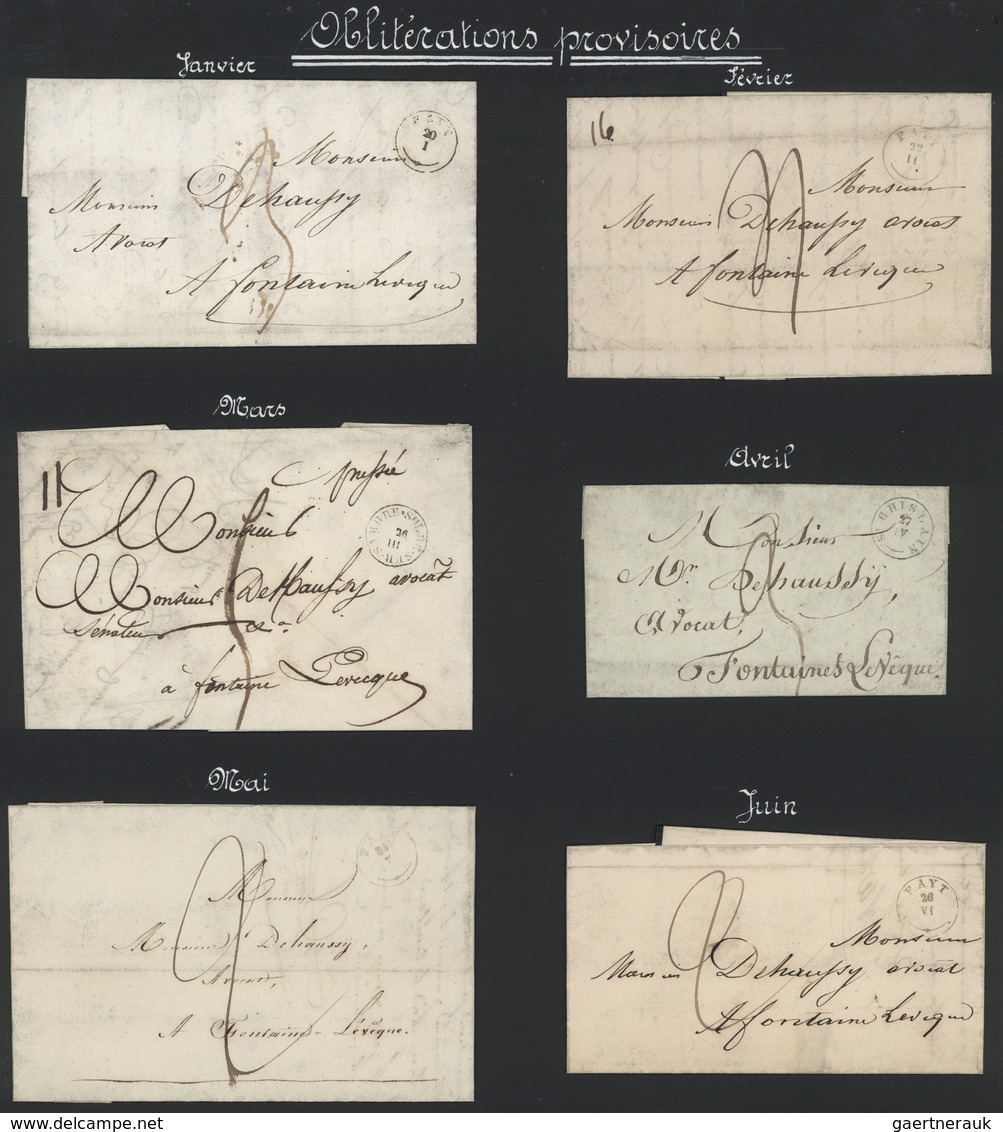 Oblitérations provisoires
Janvier
FAYT
20
I
Monsieur
Monsieur Dehaussy
Avocat
A fontaine Leveque
Février
16
FAYT
22
II
Monsieur
Monsieur Dehaussy avocat
A fontaine Leveque
Mars
pressée
SOLRE-SUR-SAMBRE
26
III
Monsieur
Monsieur DeHaussy avocat
Sénateur &a
à fontaine Levecque
Avril
ST GHISLAIN
27
IV
Monsieur
Mr. Dehaussÿ,
Avocat,
Fontaines LeVêque.
Mai
Monsieur
Monsieur Dehaussÿ,
Avocat,
A Fontaine-Lévêque.
Juin
FAYT
26
VI
Monsieur
Monsieur Dehaussy avocat
A fontaine Leveque
delcampe.net
gaertnerauk